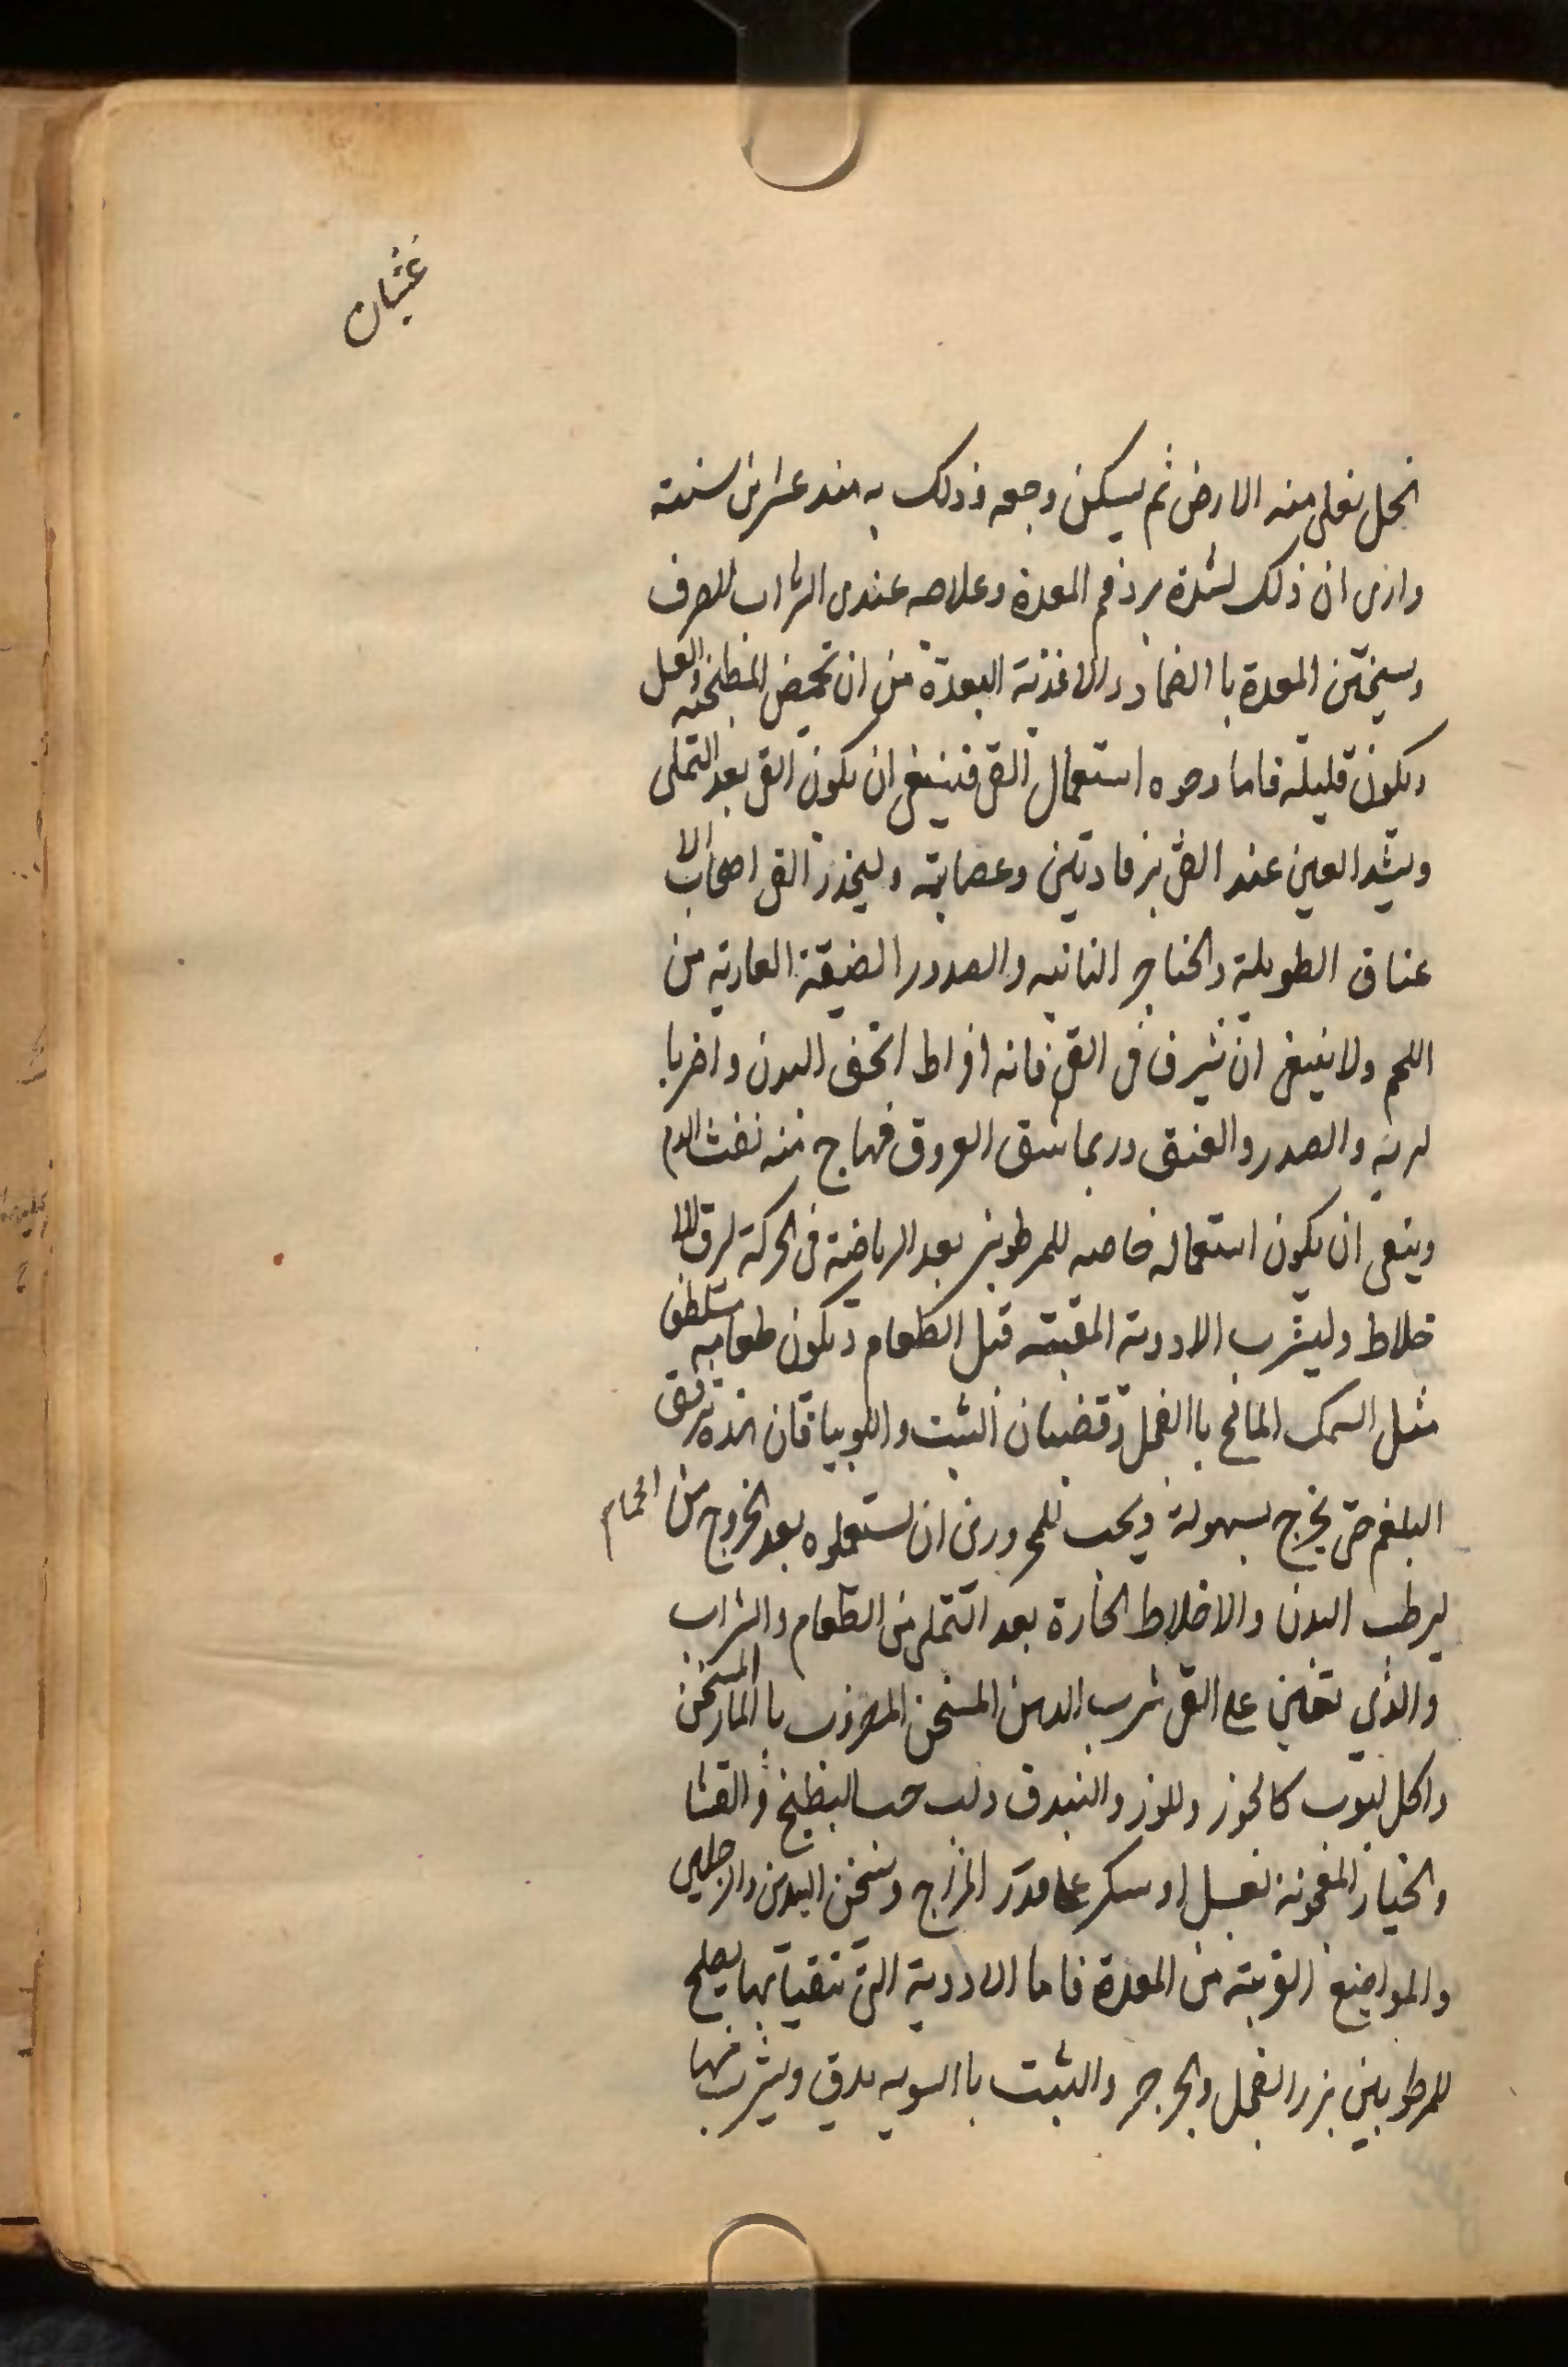 غثيان
الخل تغلى منه الارض ثم يسكن وجعه وذلك به منذ عشرين سنته
وارى ان ذلك لشدة برد فم المعدة وعلاجه عندى الشراب الصرف
وسيخين المعدة با الضماد والاغذية البعدة من ان تحمض المطنجنه والعسل
ويكون قليله فاما وجوه استعمال القى فينبغى ان يكون القى بعد التملى
ويشد العين عند القى برفادتين وعصابته وليحذر القى اصحاب الا
عناق الطويلة والحناجر الناتيه والصدور الضيقة العاريه من
اللحم ولا ينبغى ان تسرف فى القى فانه افراط انحف البدن واضر با
لريه والصدر والعنق وربما شق العروق فهاج منه نفث الدم
وينبغى ان يكون استعماله خاصه للمرطوبين بعد الرياضية فى الحركة لرق الا
خلاط وليشرب الادوية المقيته قبل الطعام ويكون طعامه ستلطف
مثل السمك المالح با الفجل وقضبان الشبت واللوبيا فان هذه ترقق
البلغم حتى يخرج بسهولة ويجب للمحرورين ان يستعملوه بعد الخروج من الحمام
ليرطب البدن والاخلاط الحارة بعد التملى من الطعام والشراب
والذى تعين على القى شرب الدهن المسخن المضروب با المار المسخن
واكل لبوب كالجوز وللوز والبندق ولب حب البطيخ والقثا
والخيار المعجونة بعسل او سكر على قدر المزاج وسخن اليدين والرجلين
والمواضع القريبته من المعدة فاما الادوية التى تتقيا بها يصلح
للمرطوبين بزر الفجل والجرجر والشبت با السويه يدق ويشرب فيها